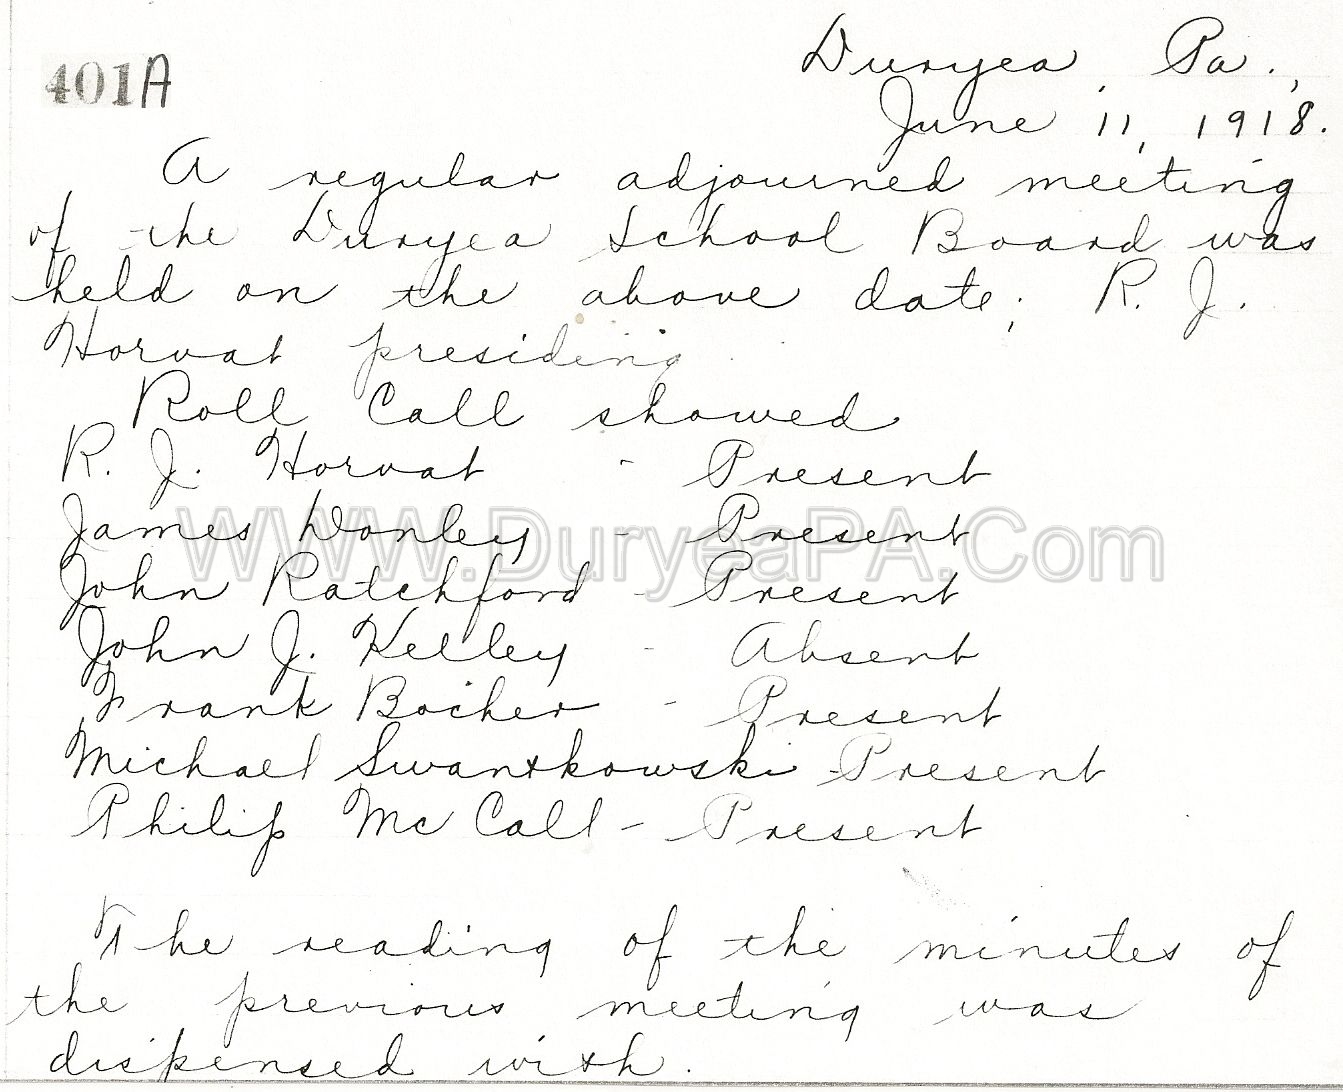 401A
Duryea, Pa.,
June 11, 1918.
A regular adjourned meeting
of the Duryea School Board was
held on the above date; R. J.
Horvat presiding.
Roll Call showed
R. J. Horvat - Present
James Donley - Present
WWW.DuryeaPA.Com
John Ratchford - Present
John J. Kelley - Absent
Frank Bocher - Present
Michael Swantkowski - Present
Philip McCall - Present
The reading of the minutes of
the previous meeting was
dispensed with.